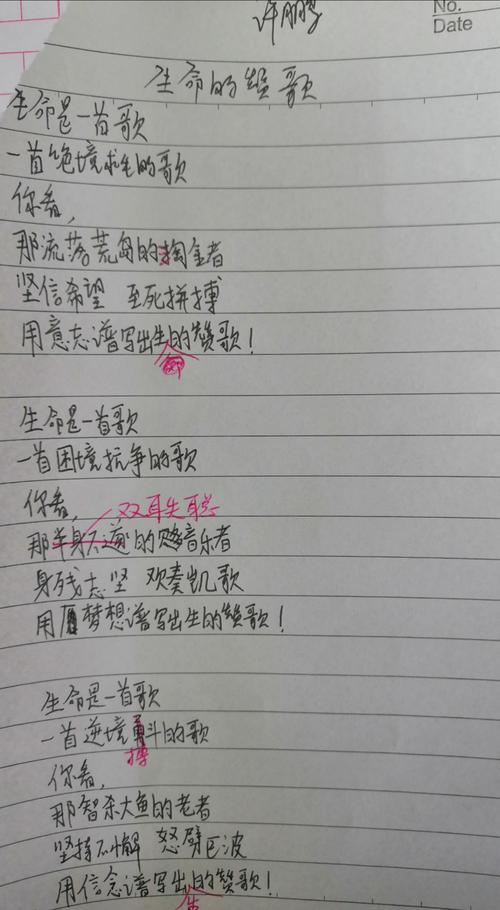 许鹏
No.
Date
生命的赞歌
生命是一首歌
一首绝境求生的歌
你看,
那流落荒岛的掏金者
坚信希望 至死拼搏
用意志谱写出生的赞歌!
命
生命是一首歌
一首困境抗争的歌
你看,
双耳失聪
那半身不遂的音乐者
身残志坚 欢奏凯歌
用梦想谱写出生的赞歌!
生命是一首歌
一首逆境斗的歌
搏
你看,
那智杀大鱼的老者
坚持不懈 怒劈巨波
用信念谱写出的赞歌!
生